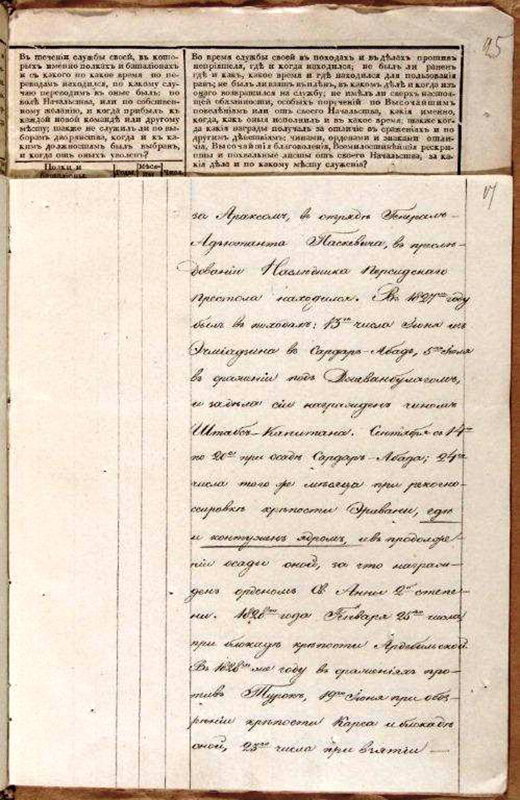 25
Въ теченіи службы своей, въ кото-
рыхъ именно полкахъ и баталіонахъ
и съ какого по какое время по пе-
реводамъ находился, по какому слу-
чаю переходилъ въ оные былъ; по
волѣ Начальства, или по собствен-
ному желанію, и когда прибылъ къ
каждой новой командѣ или другому
мѣсту; также не служилъ ли по вы-
борамъ дворянства, когда и въ ка-
кимъ должностямъ былъ выбранъ,
и когда отъ оныхъ уволенъ?
Полки и
баталіоны.
Годы.
Мѣся-
цы
Числ.
Во время службы своей въ походахъ и въ дѣлахъ противъ
непріятеля, гдѣ и когда находился; не былъ ли раненъ
гдѣ и какъ, какое время и гдѣ находился для пользованія
ранъ; не былъ ли взятъ въ плѣнъ, въ какомъ дѣлѣ и когда изъ
онаго возвратился на службу; не имѣлъ ли сверхъ настоя-
щей обязанности, особыхъ порученій по Высочайшимъ
повелѣніямъ или отъ своего Начальства, какія именно,
когда, какъ оныя исполнилъ и въ какое время; также ког-
да какія награды получалъ за отличіе въ сраженіяхъ и по
другимъ дѣяніямъ чинами, орденами и знаками отли-
чія, Высочайшія благоволенія, Всемилостивѣйшіе рескрип-
пты и похвальные листы отъ своего Начальства, за ка-
кія дѣла и по какому мѣсту служенія?
за Араксомъ, въ отрядѣ Генералъ-
Адъютанта Паскевича, въ преслѣ-
дованіи Наслѣдника Персидскаго
престола находился. Въ 1827мъ году
былъ въ походахъ: 13го числа Іюня изъ
Эчміадзина въ Сардаръ-Абадъ, 5го Іюля
въ сраженіи подъ Джеванбулагомъ,
и за дѣла сіи награжденъ чиномъ
Штабсъ-Капитана. Сентября съ 14го
по 20е при осадѣ Сардаръ-Абада; 24го
числа того же мѣсяца при рекогно-
сцировкѣ крѣпости Эривани, гдѣ
и контуженъ ядромъ, и въ продолже-
ніи осады оной, за что награж-
денъ орденомъ Св. Анны 2й степе-
ни. 1828го года Генваря 25го числа,
при блокадѣ крѣпости Ардебильской.
Въ 1828мъ же году въ сраженіяхъ про-
тивъ Турокъ, 19го Іюня при обоз-
рѣніи крѣпости Карса и блокадѣ
оной, 23го числа при взятіи